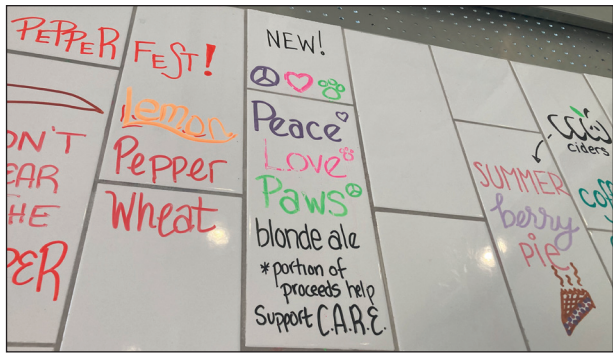 PEPPER
FEST!
ON'T
EAR
HE
PER
Lemon
Pepper
Wheat
NEW!
Peace
Love
Paws
blonde ale
*portion of
proceeds help
Support C.A.R.E.
ciders
SUMMER
berry
pie